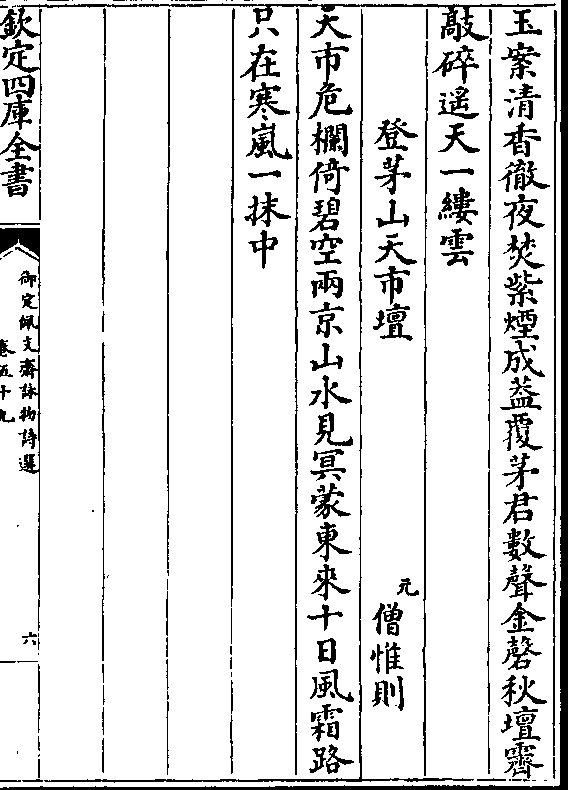 玉案清香徹夜焚紫煙成葢覆茅君數聲金磬秋壇霽
敲碎遙天一縷雲
登茅山天市壇
元 僧惟則
天市危欄倚碧空兩京山水見冥蒙東來十日風霜路
只在寒嵐一抹中
欽定四庫全書
御定佩文齋詠物詩選
卷五十九
六